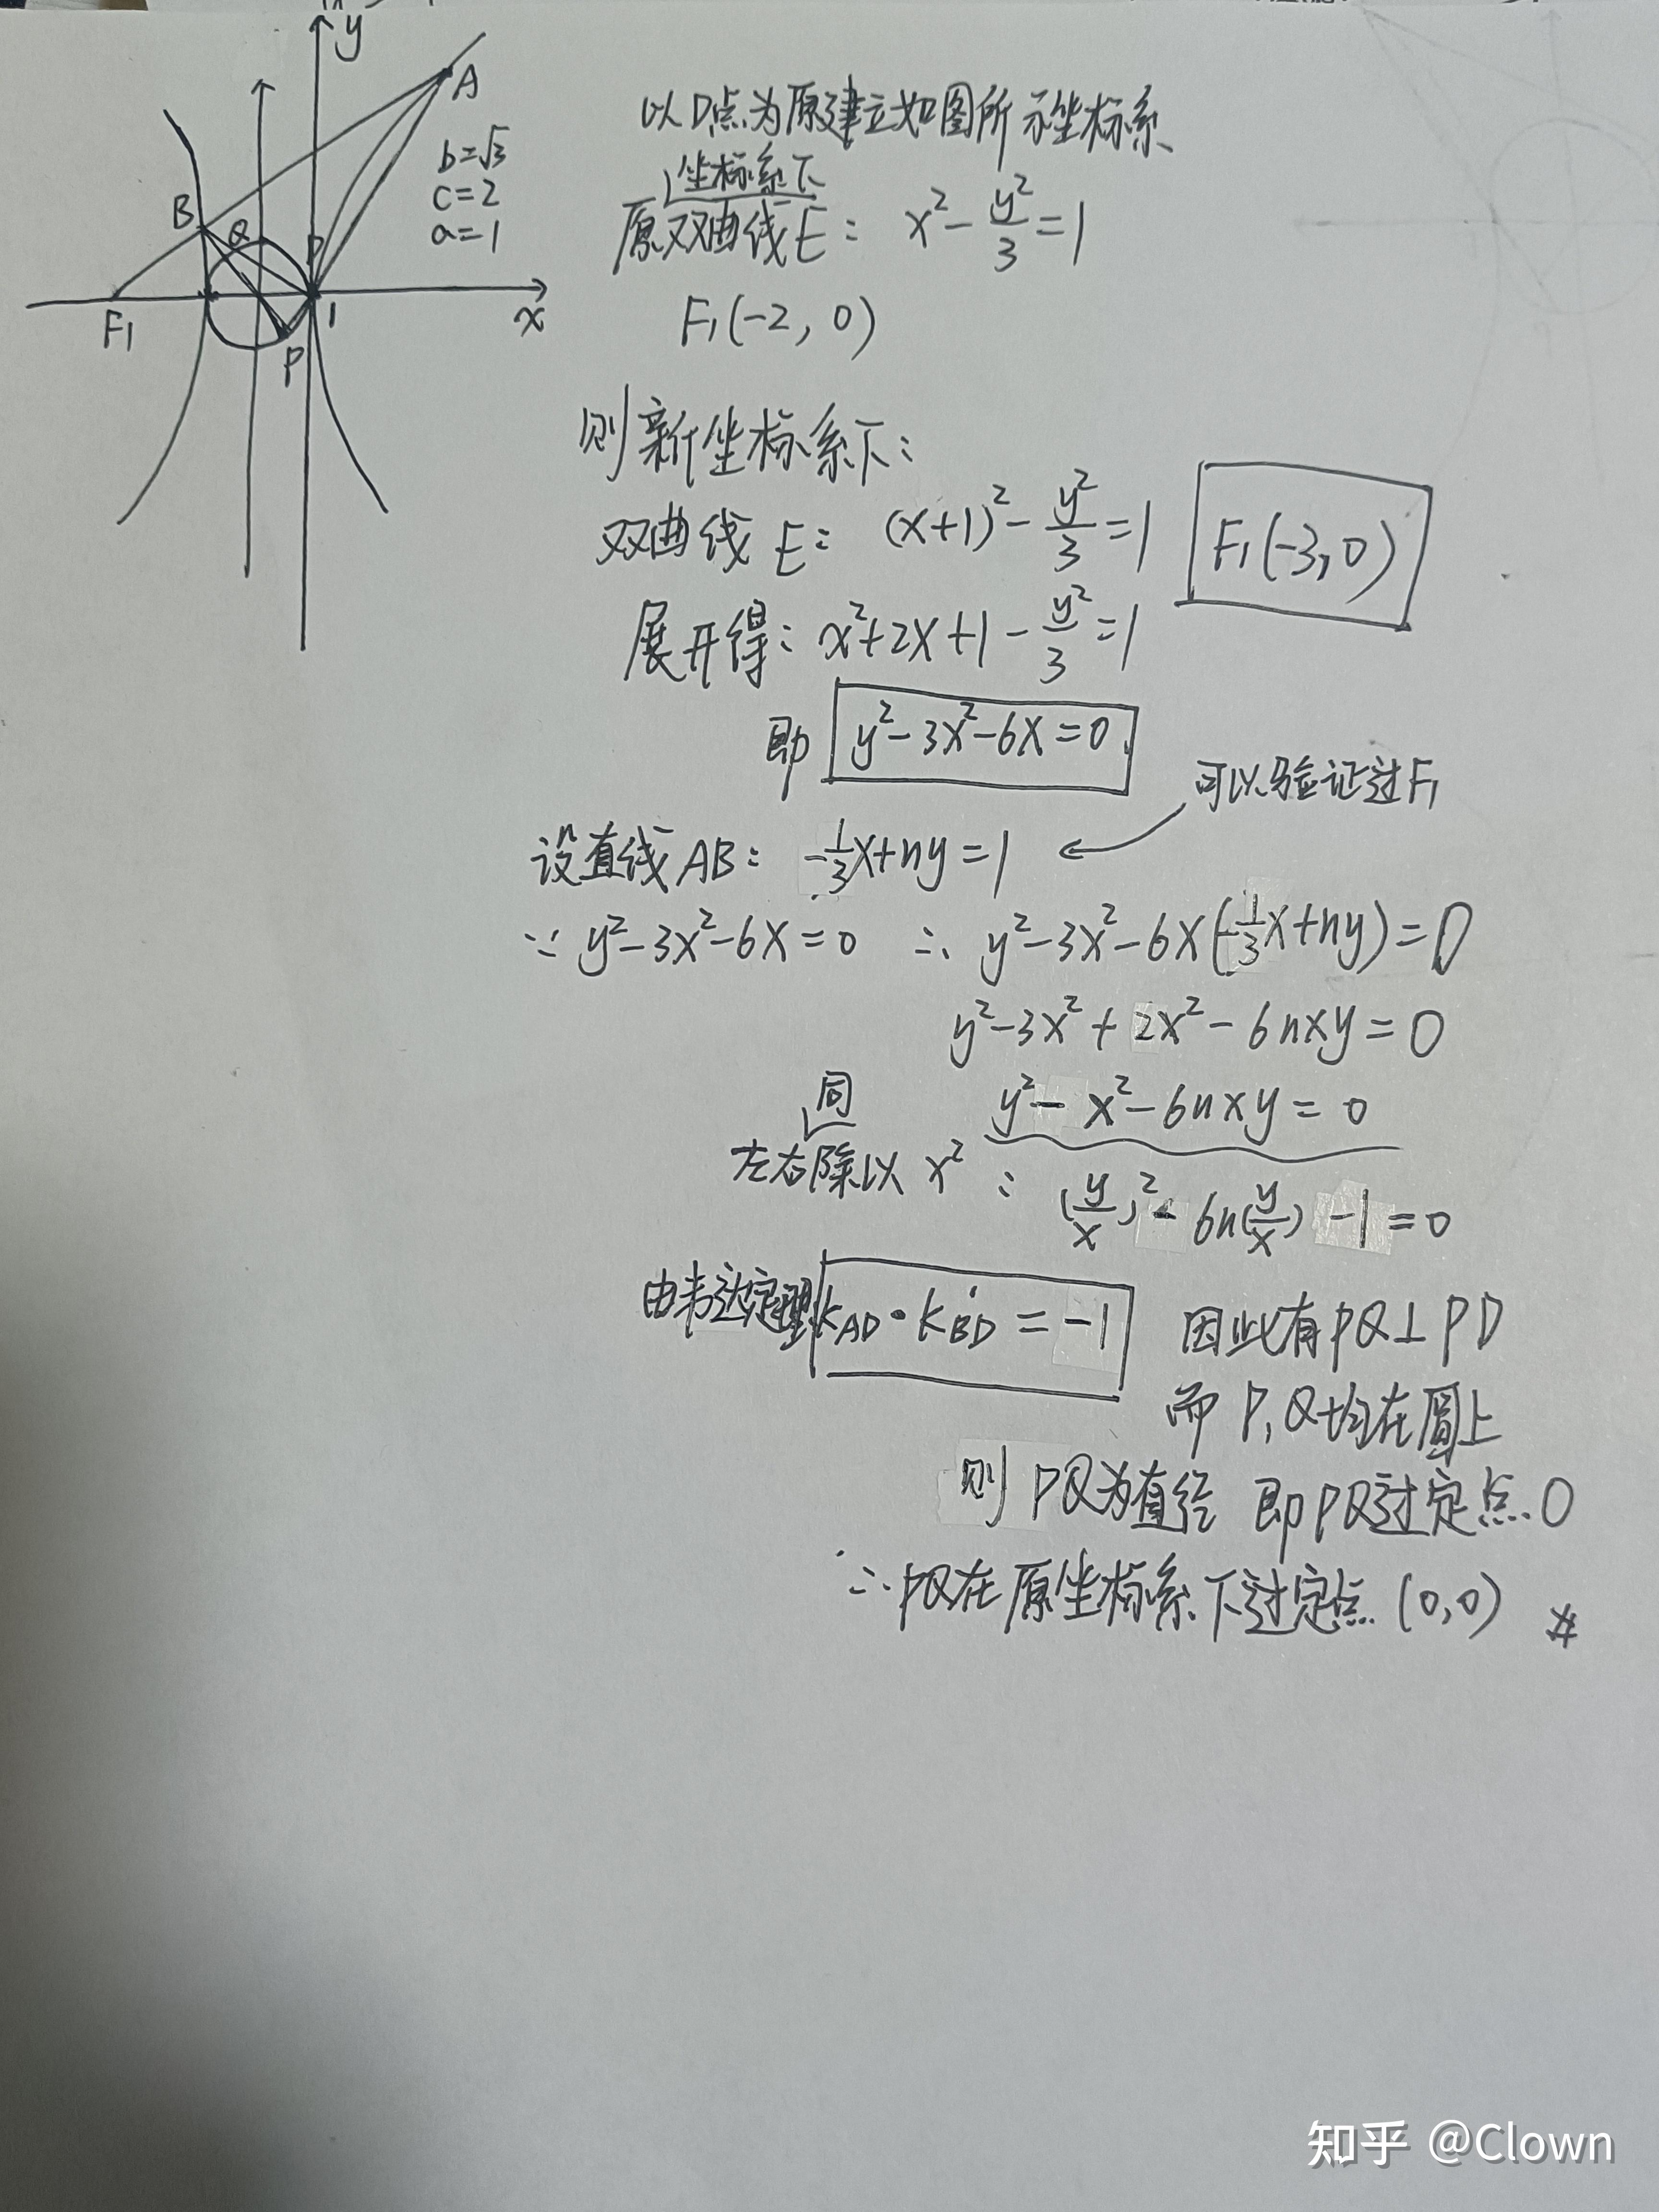 y
A
b=√3
c=2
a=1
B
Q
D
F₁
1
x
P
以D点为原建立如图所示坐标系
坐标系下
原双曲线E: x²-y²/3=1
F₁(-2, 0)
则新坐标系下:
双曲线 E: (x+1)²-y²/3=1
F₁(-3, 0)
展开得: x²+2x+1-y²/3=1
即 y²-3x²-6x=0
可以验证过F₁
设直线AB: -1/3x+ny=1
∵ y²-3x²-6x=0 ∴ y²-3x²-6x(-1/3x+ny)=0
y²-3x²+2x²-6nxy=0
y²-x²-6nxy=0
同
左右除以x²: (y/x)²-6n(y/x)-1=0
由韦达定理 k_AD·k_BD=-1 因此有PQ⊥PD
而P,Q均在圆上
则PQ为直径 即PQ过定点O
∴PQ在原坐标系下过定点(0,0) #
知乎 @Clown